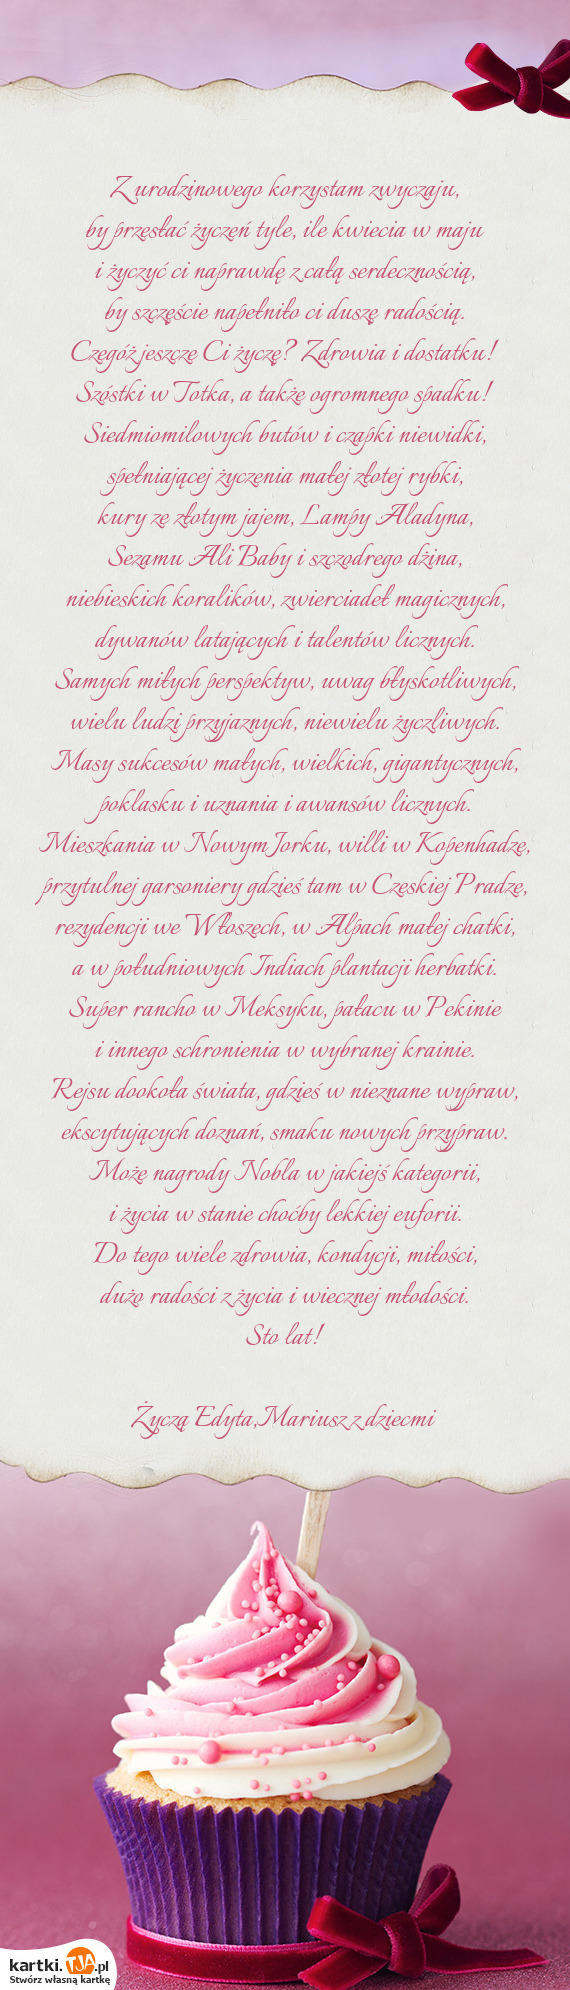 Z urodzinowego korzystam zwyczaju,
by przesłać życzeń tyle, ile kwiecia w maju
i życzyć ci naprawdę z całą serdecznością,
by szczęście napełniło ci duszę radością.
Czegóż jeszcze Ci życzę? Zdrowia i dostatku!
Szóstki w Totka, a także ogromnego spadku!
Siedmiomilowych butów i czapki niewidki,
spełniającej życzenia małej złotej rybki,
kury ze złotym jajem, Lampy Aladyna,
Sezamu Ali Baby i szczodrego dżina,
niebieskich koralików, zwierciadeł magicznych,
dywanów latających i talentów licznych.
Samych miłych perspektyw, uwag błyskotliwych,
wielu ludzi przyjaznych, niewielu życzliwych.
Masy sukcesów małych, wielkich, gigantycznych,
poklasku i uznania i awansów licznych.
Mieszkania w Nowym Jorku, willi w Kopenhadze,
przytulnej garsoniery gdzieś tam w Czeskiej Pradze,
rezydencji we Włoszech, w Alpach małej chatki,
a w południowych Indiach plantacji herbatki.
Super rancho w Meksyku, pałacu w Pekinie
i innego schronienia w wybranej krainie.
Rejsu dookoła świata, gdzieś w nieznane wypraw,
ekscytujących doznań, smaku nowych przypraw.
Może nagrody Nobla w jakiejś kategorii,
i życia w stanie choćby lekkiej euforii.
Do tego wiele zdrowia, kondycji, miłości,
dużo radości z życia i wiecznej młodości.
Sto lat!
Życzą Edyta,Mariusz z dziecmi
kartki.TJA.pl
Stwórz własną kartkę